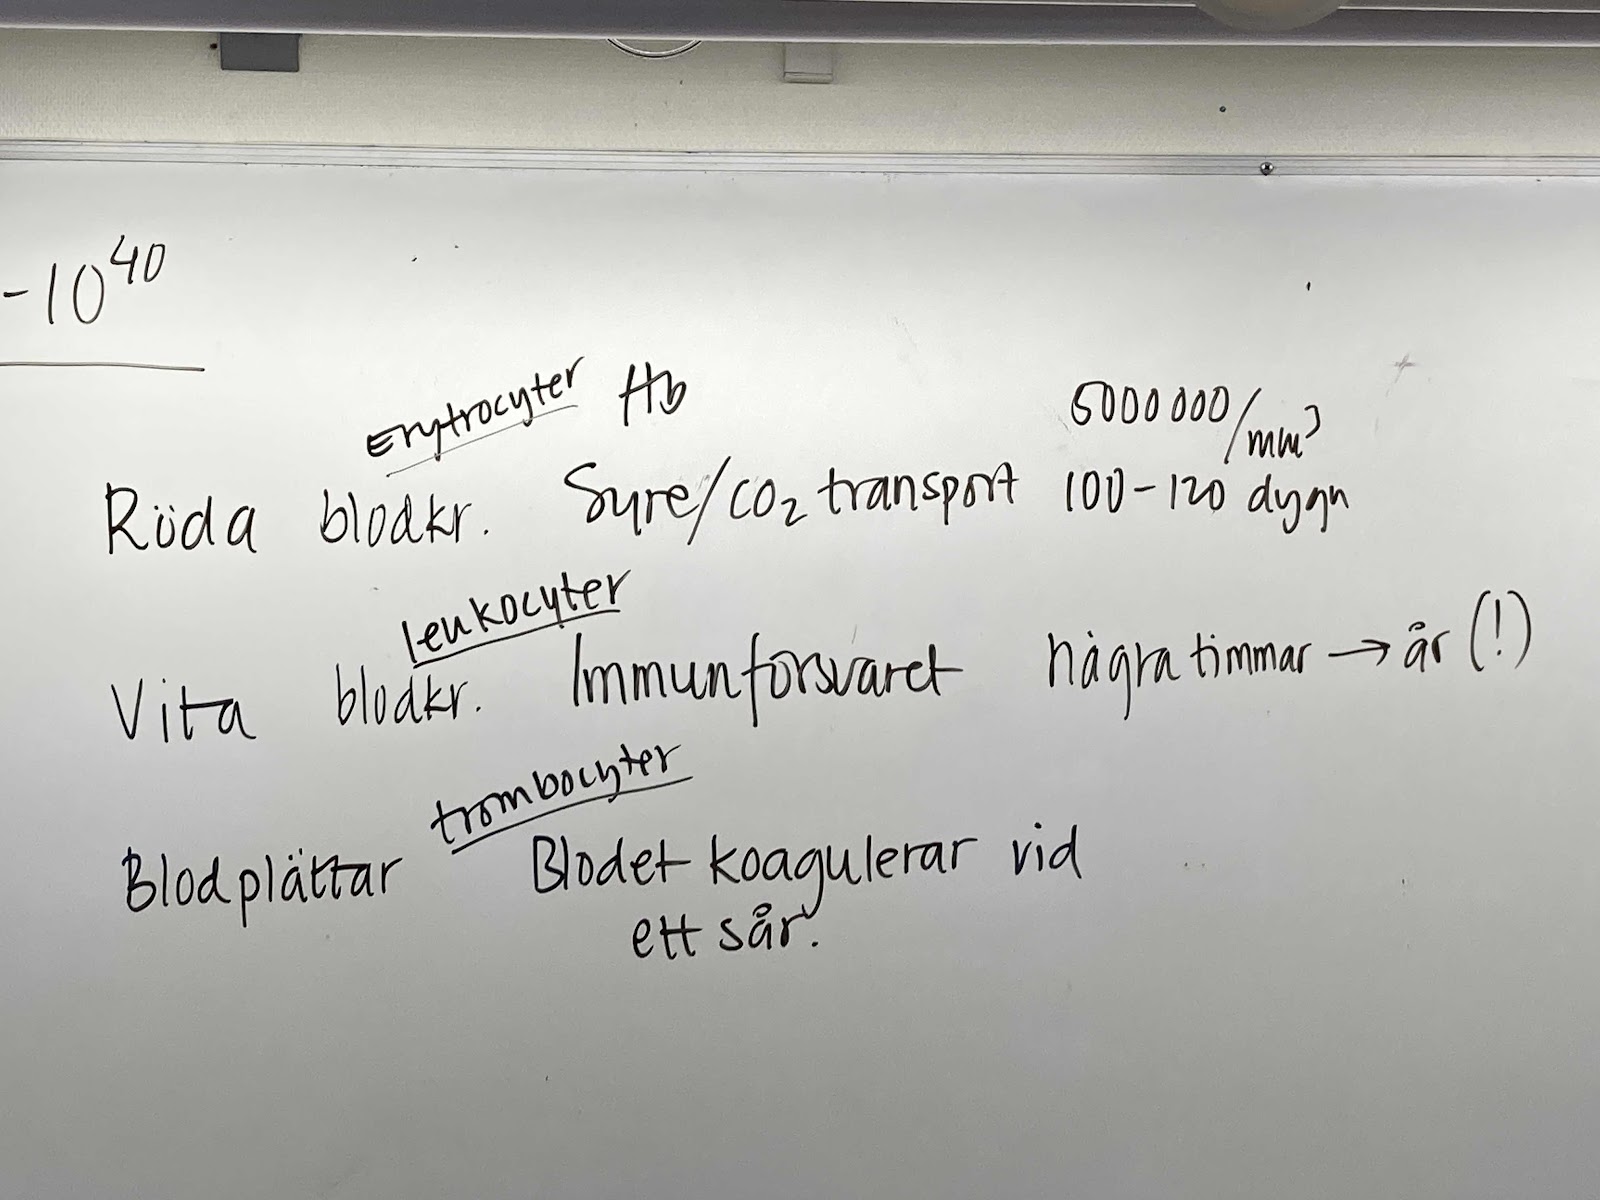 -10⁴⁰
Erytrocyter Hb 5000 000/mm³
Röda blodkr. Syre/CO₂ transport 100-120 dygn
leukocyter
Vita blodkr. Immunförsvaret några timmar → år (!)
trombocyter
Blodplättar Blodet koagulerar vid
ett sår.